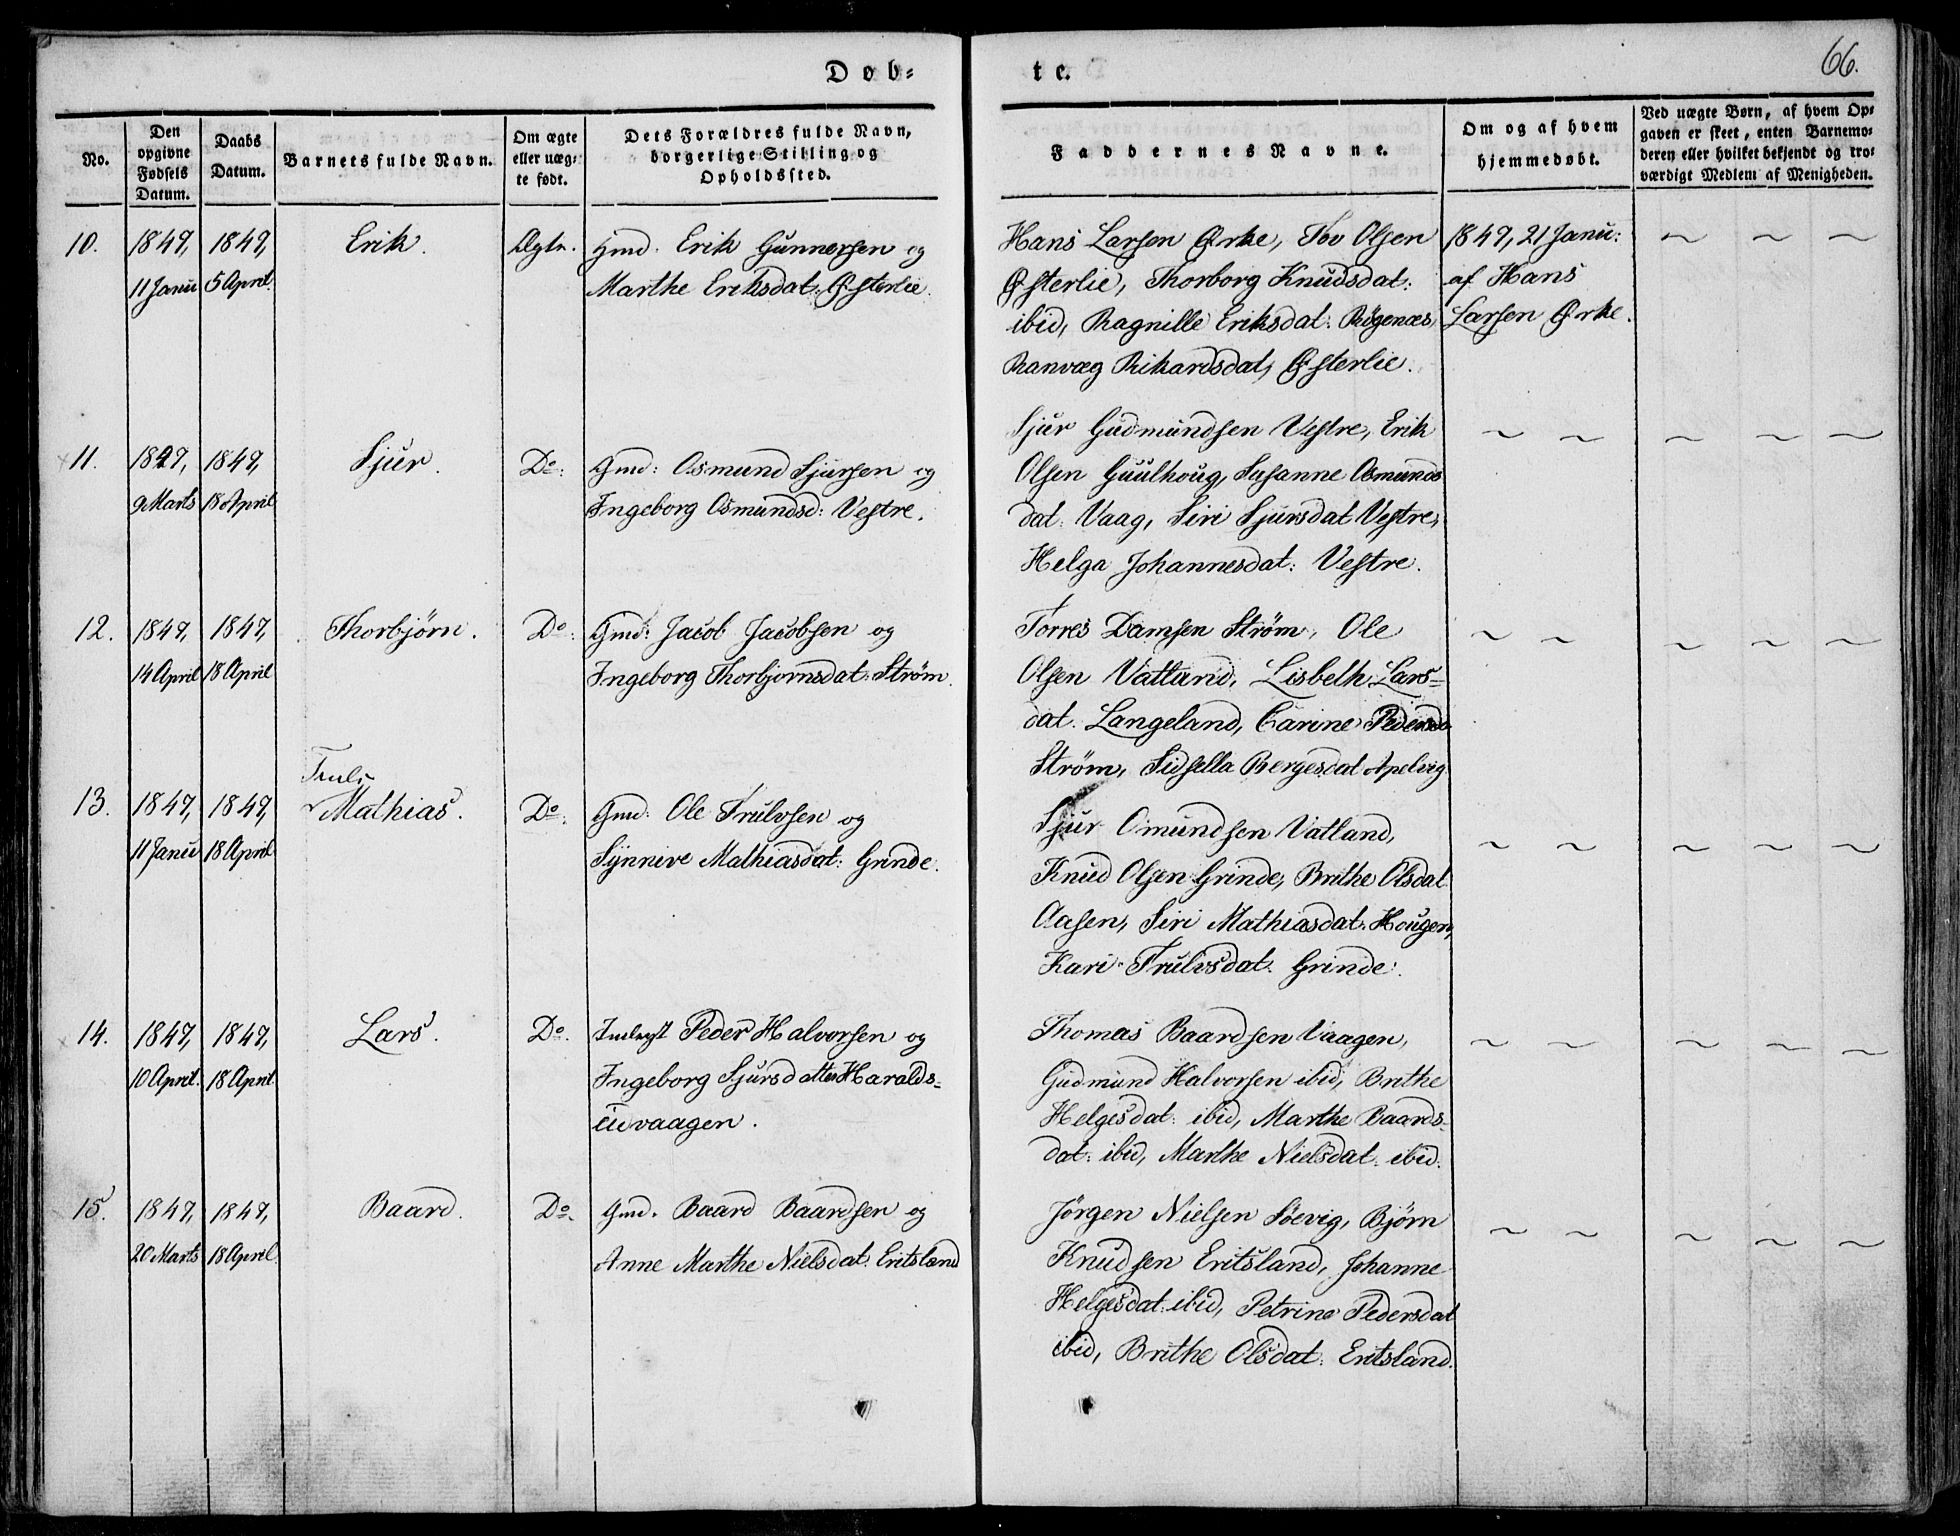 66.
Døb-
te.
No.
Den
opgivne
Fødsels
Datum.
Daabs
Datum.
Barnets fulde Navn.
Om ægte
eller uæg-
te født.
Dets Forældres fulde Navn,
borgerlige Stilling og
Opholdssted.
Faddernes Navne.
Om og af hvem
hjemmedøbt.
Ved uægte Børn, af hvem Op-
gaven er skeet, enten Barnemo-
deren eller hvilket bekjendt og tro-
værdigt Medlem af Menigheden.
10.
1847,
11 Janu
1847,
5 April.
Erik.
Ægte.
Gmd. Erik Gunnersen og
Marthe Eriksdat. Østerlie.
Hans Larsen Ørke, Tov Olsen
Østerlie, Thorborg Knudsdat:
ibid, Ragnille Eriksdat. Bøgenæs,
Ranvæg Rikardsdat, Østerlie.
1847, 21 Janu:
af Hans
Larsen Ørke.
11.
1847,
9 Marts
1847,
18 April
Sjur.
Do:
Gmd: Osmund Sjursen og
Ingeborg Osmundsd: Vestre.
Sjur Gudmundsen Vestre, Erik
Olsen Guulhoug, Susanne Osmunds
dat: Vaag, Siri Sjursdat Vestre,
Helga Johannesdat: Vestre.
12.
1847,
14 April
1847,
18 April
Thorbjörn.
Do:
Gmd: Jacob Jacobsen og
Ingeborg Thorbjornsdat. Strøm.
Torres Damsen Strøm, Ole
Olsen Vatland, Lisbeth Lars-
dat. Langeland, Carine Pedersd
Strøm, Sidsella Bergesdat Apelvig
13.
1847,
11 Janu
1847,
18 April
Truls
Mathias.
Do:
Gmd: Ole Trulvsen og
Synnive Mathiasdat: Grinde.
Sjur Omundsen Vatland,
Knud Olsen Grinde, Brithe Olsdat
Aasen, Siri Mathiasdat. Hougen,
Kari Trulvsdat. Grinde.
14.
1847,
10 April.
1847,
18 April
Lars.
Do.
Inderst Peder Halvorsen og
Ingeborg Sjursdatter Haralds-
eidvaagen.
Thomas Baardsen Vaagen,
Gudmund Halvorsen ibid, Brithe
Helgesdat: ibid, Marthe Baards-
dat: ibid, Marthe Nielsdat. ibid.
15.
1847,
20 Marts
1847,
18 April
Baard.
Do.
Gmd. Baard Baardsen og
Anne Marthe Nielsdat. Eritsland
Jörgen Nielsen Söevig, Bjørn
Knudsen Eritsland, Johanne
Helgesdat. ibid, Petrine Pedersdat
ibid, Brithe Olsdat: Eritsland.